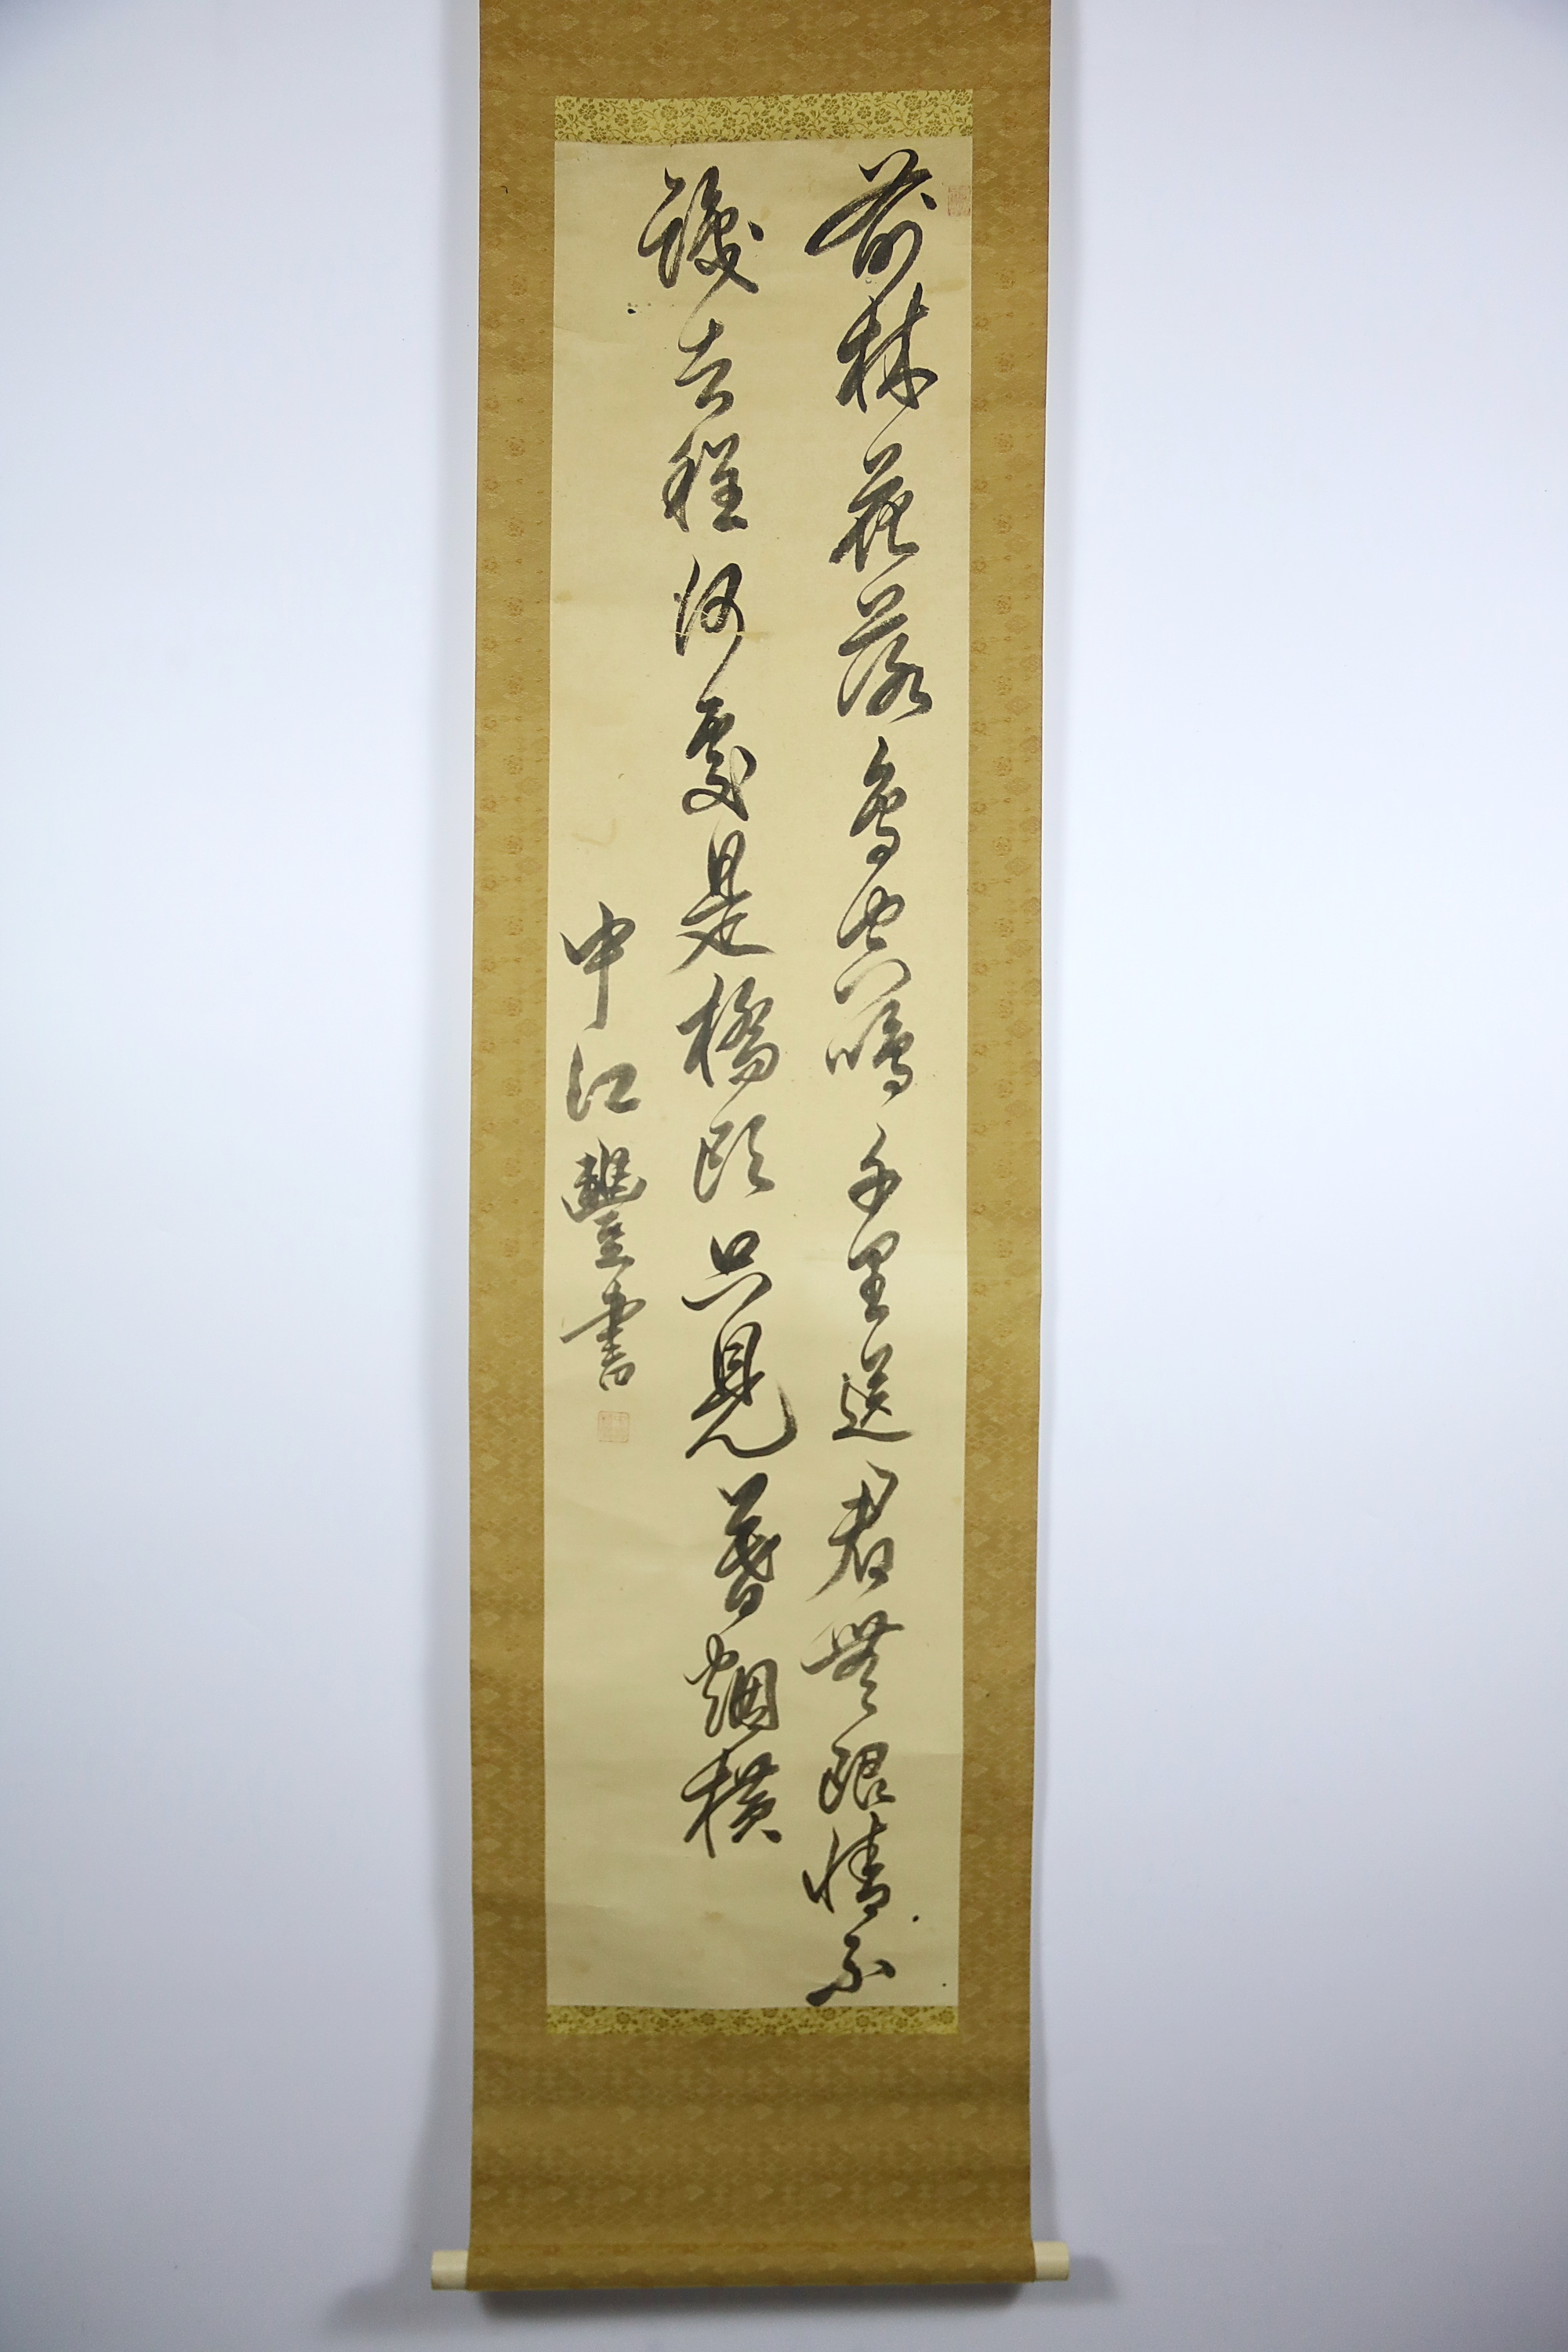 前林花落鳥空鳴千里送君無限情不
識去程何處是橋頭只見暮烟横
中江豐書